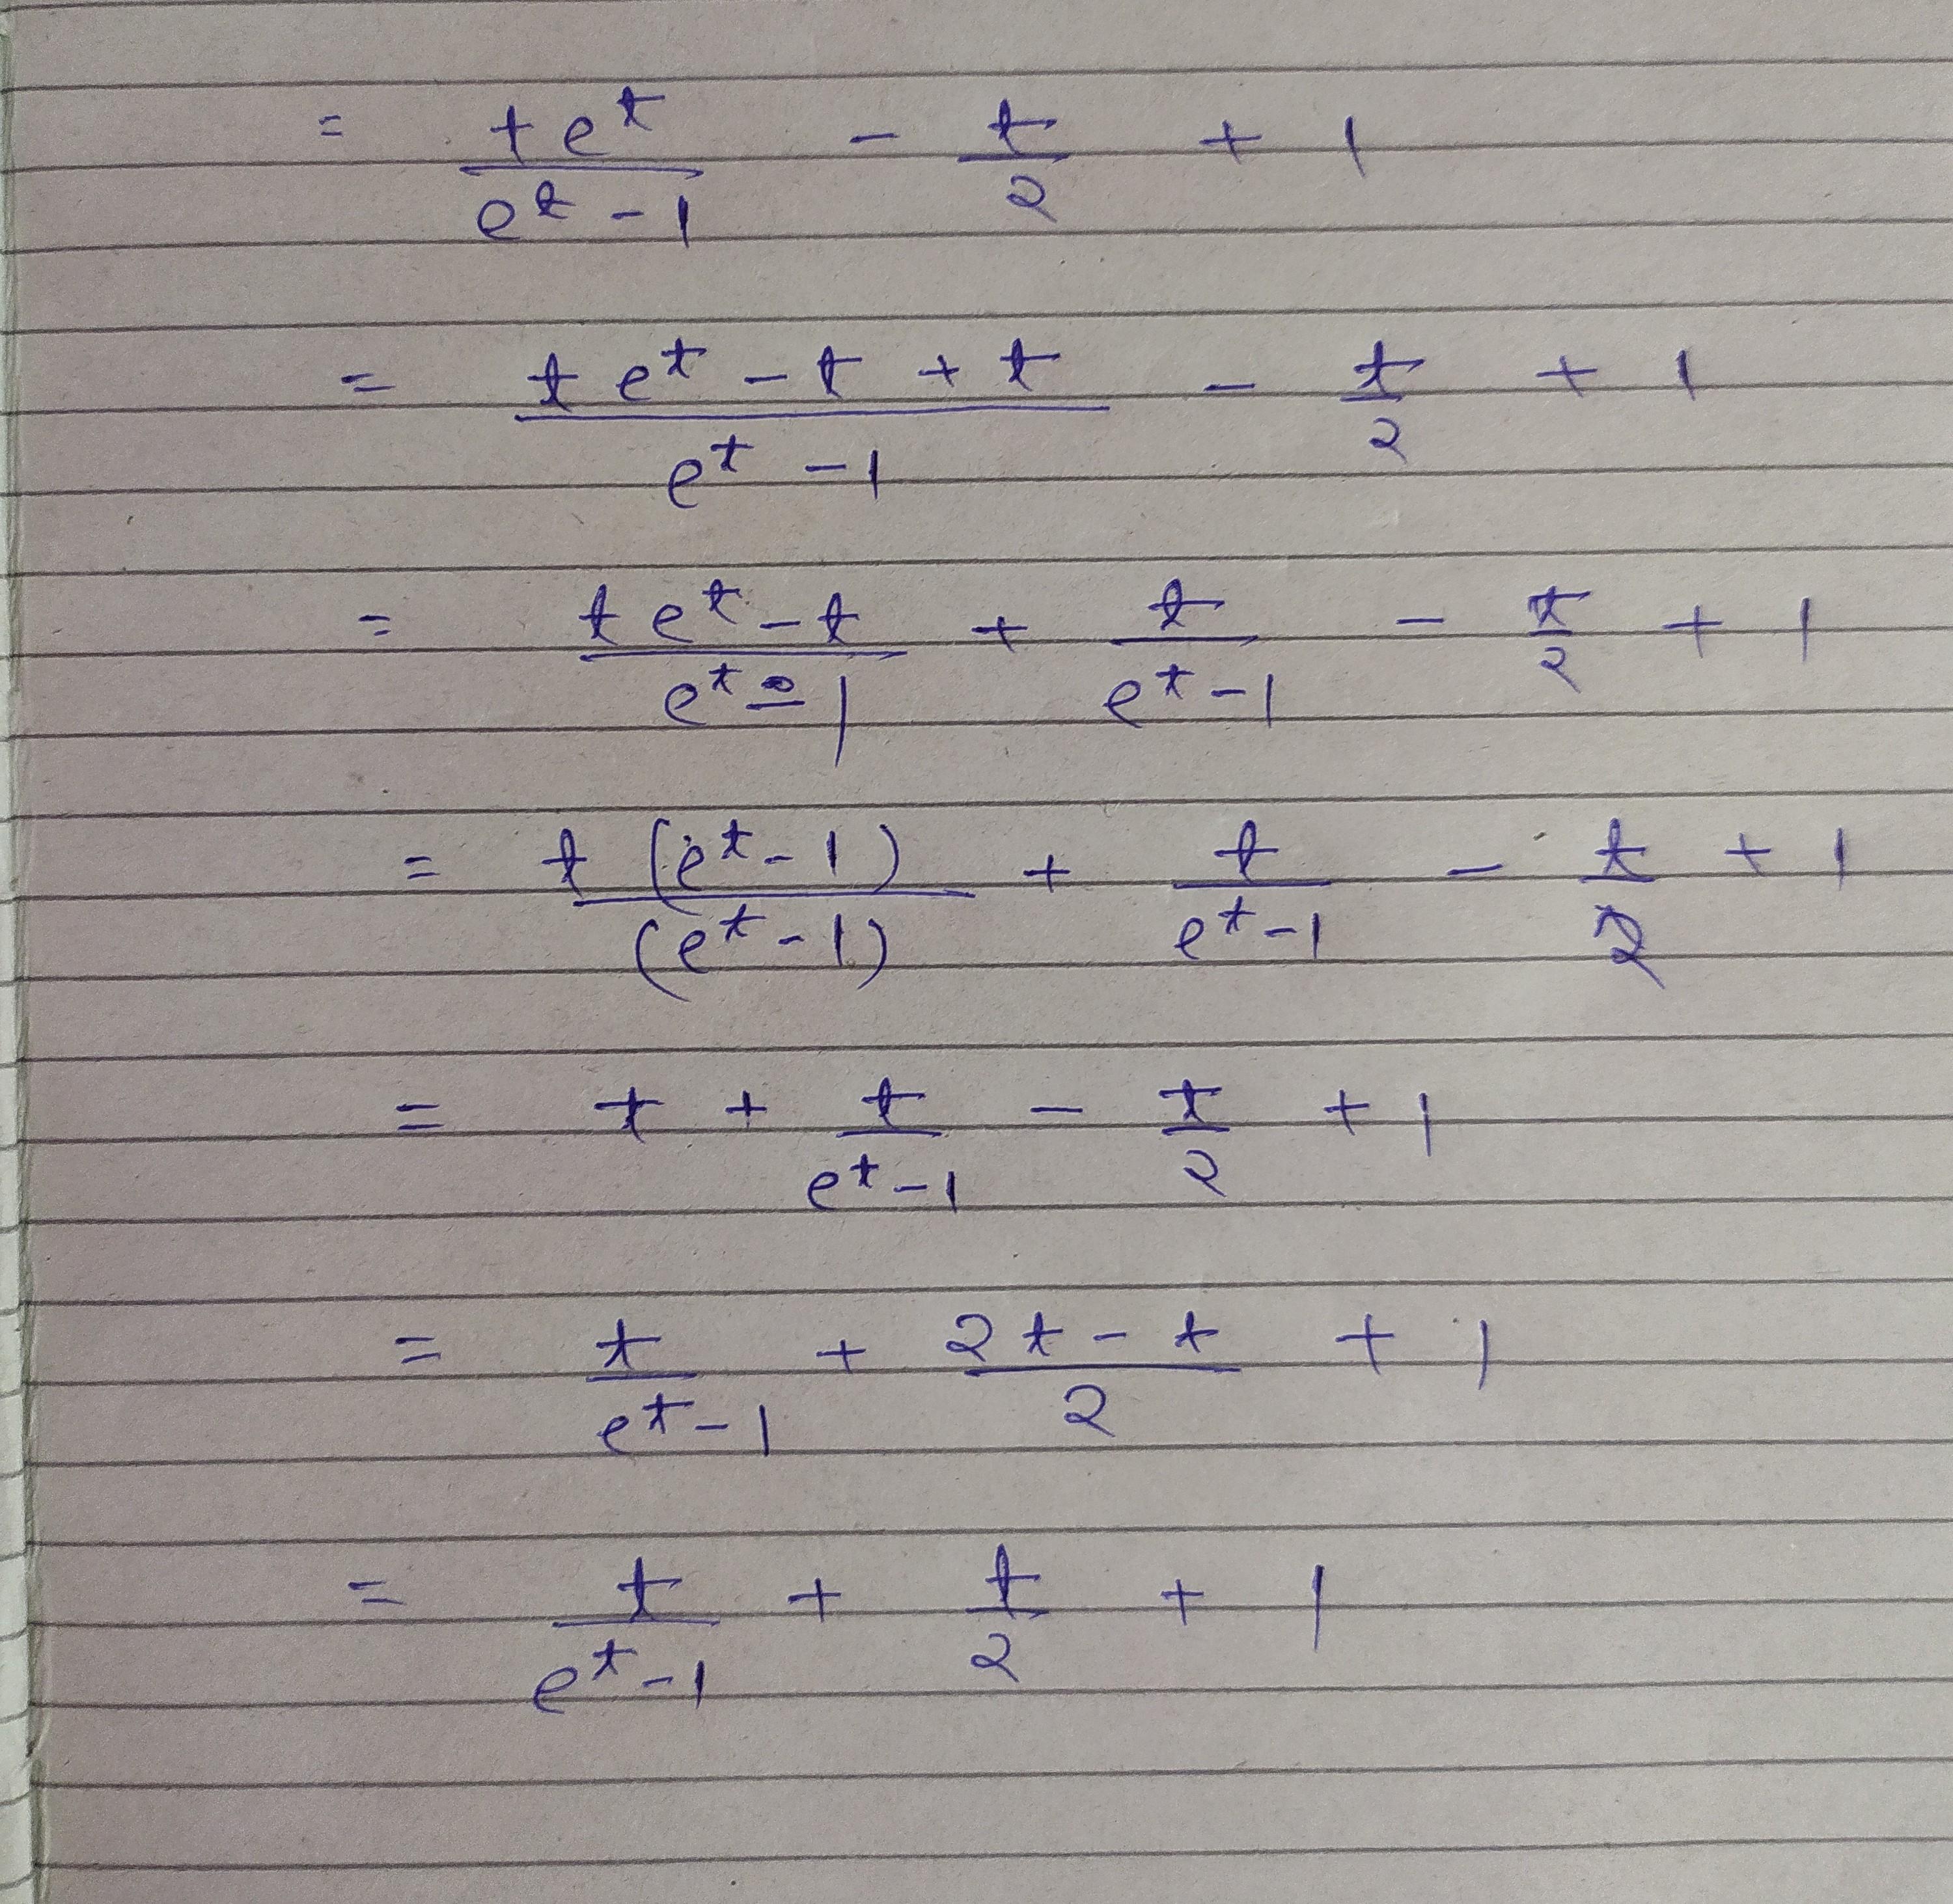 = te^t/(e^t - 1) - t/2 + 1
= (te^t - t + t)/(e^t - 1) - t/2 + 1
= (te^t - t)/(e^t - 1) + t/(e^t - 1) - t/2 + 1
= t(e^t - 1)/(e^t - 1) + t/(e^t - 1) - t/2 + 1
= t + t/(e^t - 1) - t/2 + 1
= t/(e^t - 1) + (2t - t)/2 + 1
= t/(e^t - 1) + t/2 + 1